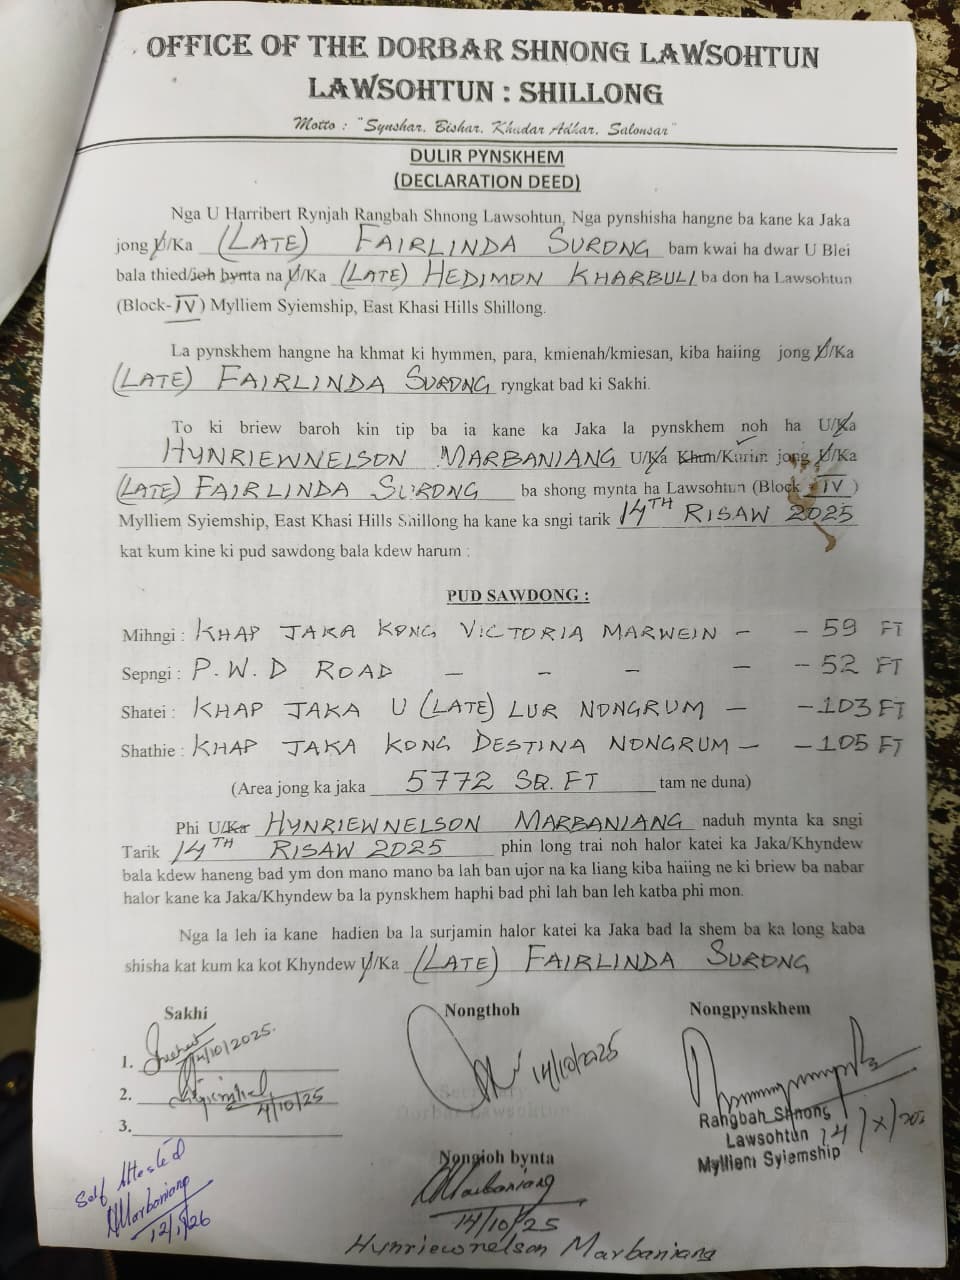 OFFICE OF THE DORBAR SHNONG LAWSOHTUN
LAWSOHTUN : SHILLONG
Motto : "Synshar, Bishar, Khadar Adhar, Salonsar"
DULIR PYNSKHEM
(DECLARATION DEED)
Nga U Harribert Rynjah Rangbah Shnong Lawsohtun, Nga pynshisha hangne ba kane ka Jaka
jong U/Ka (LATE) FAIRLINDA SURONG bam kwai ha dwar U Blei
bala thied/ioh bynta na U/Ka (LATE) HEDIMON KHARBULI ba don ha Lawsohtun
(Block-IV) Mylliem Syiemship, East Khasi Hills Shillong.
La pynskhem hangne ha khmat ki hymmen, para, kmienah/kmiesan, kiba haiing jong U/Ka
(LATE) FAIRLINDA SURONG ryngkat bad ki Sakhi.
To ki briew baroh kin tip ba ia kane ka Jaka la pynskhem noh ha U/Ka
HYNRIEWNELSON MARBANIANG U/Ka Khun/Kurim jong U/Ka
(LATE) FAIRLINDA SURONG ba shong mynta ha Lawsohtun (Block - IV)
Mylliem Syiemship, East Khasi Hills Shillong ha kane ka sngi tarik 14TH RISAW 2025
kat kum kine ki pud sawdong bala kdew harum :
PUD SAWDONG :
Mihngi : KHAP JAKA KONG VICTORIA MARWEIN - - 59 FT
Sepngi : P.W.D ROAD - - - - - 52 FT
Shatei : KHAP JAKA U (LATE) LUR NONGRUM - - 103 FT
Shathie : KHAP JAKA KONG DESTINA NONGRUM - - 105 FT
(Area jong ka jaka 5772 SQ. FT tam ne duna)
Phi U/Ka HYNRIEWNELSON MARBANIANG naduh mynta ka sngi
Tarik 14TH RISAW 2025 phin long trai noh halor katei ka Jaka/Khyndew
bala kdew haneng bad ym don mano mano ba lah ban ujor na ka liang kiba haiing ne ki briew ba nabar
halor kane ka Jaka/Khyndew ba la pynskhem haphi bad phi lah ban leh katba phi mon.
Nga la leh ia kane hadien ba la surjamin halor katei ka Jaka bad la shem ba ka long kaba
shisha kat kum ka kot Khyndew U/Ka (LATE) FAIRLINDA SURONG
Sakhi Nongthoh Nongpynskhem
1. 14/10/2025.
14/10/2025
2. 14/10/25
Secretary
Dorbar Lawsohtun
Rangbah Shnong
Lawsohtun 14/X/2025
Mylliem Syiemship
3.
Nongioh bynta
Marbaniang
14/10/25
Hynriewnelson Marbaniang
Self Attested
Marbaniang
12/1/26